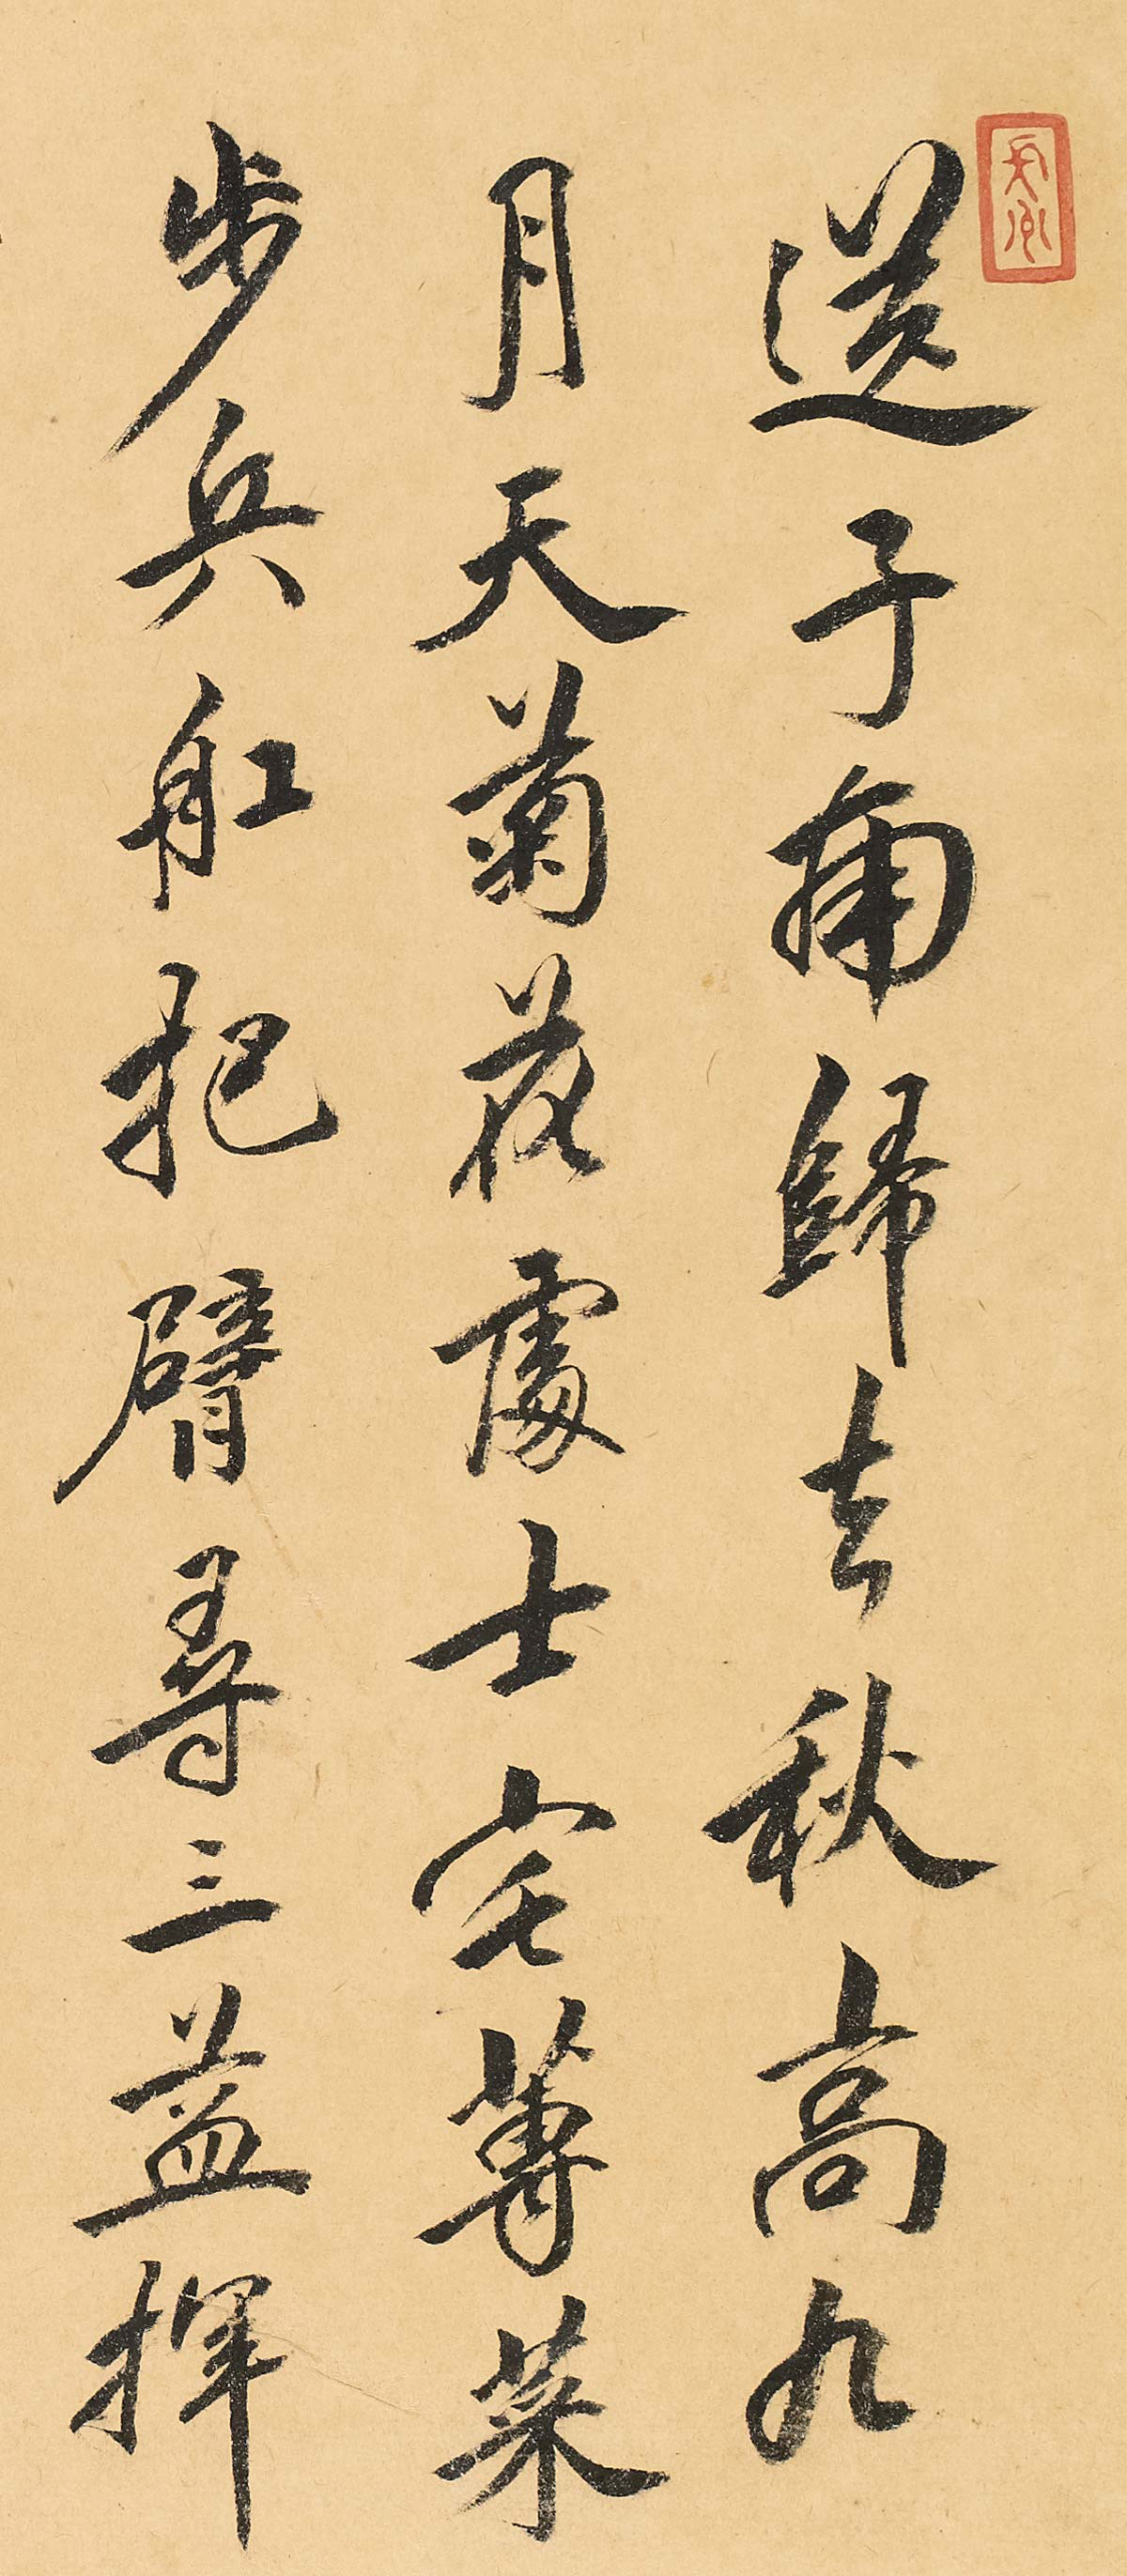 送子南歸去秋高九
月天菊花處士宅蓴菜
步兵舡把臂尋三益揮